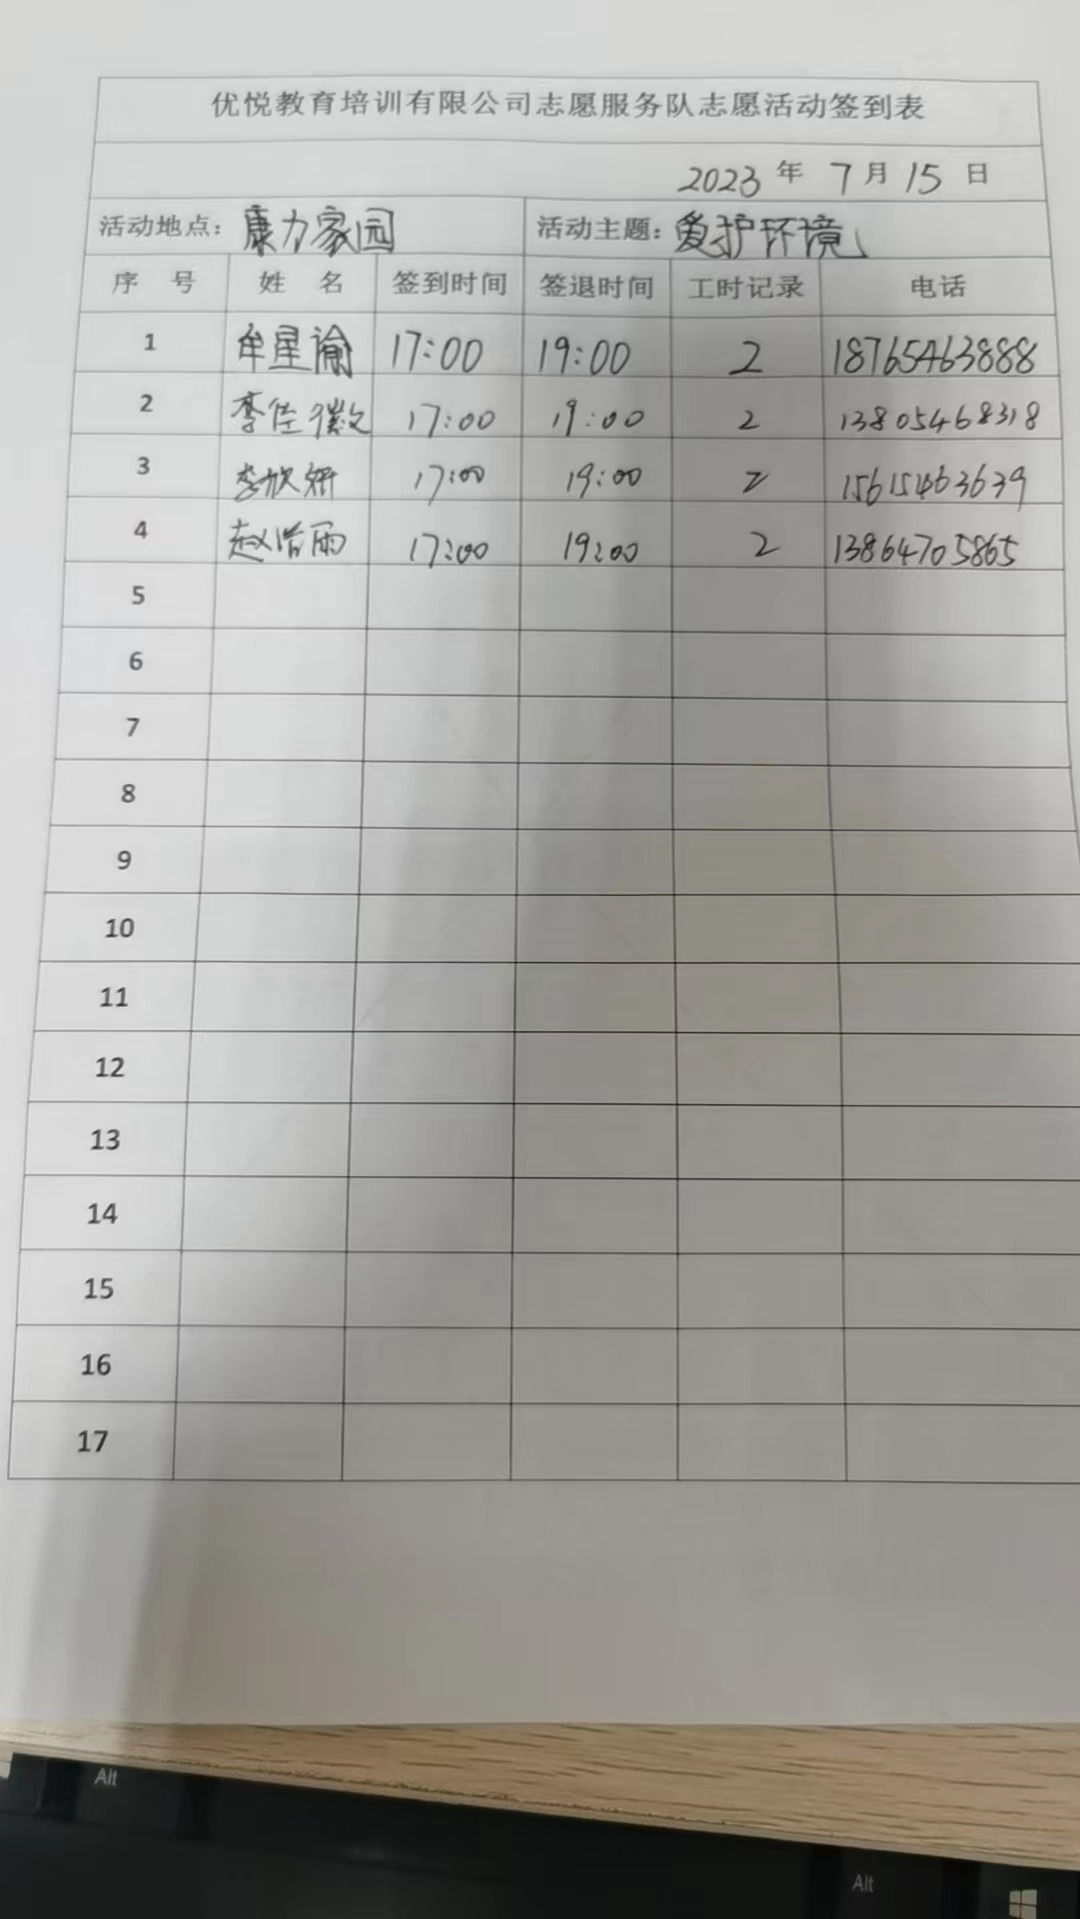 优悦教育培训有限公司志愿服务队志愿活动签到表
2023 年 7 月 15 日
活动地点：康力家园 活动主题：爱护环境
序 号 姓 名 签到时间 签退时间 工时记录 电话
1 牟星谕 17:00 19:00 2 18765463888
2 李佳徽 17:00 19:00 2 13805468318
3 李欣妍 17:00 19:00 2 15615463639
4 赵浩雨 17:00 19:00 2 13864705865
5
6
7
8
9
10
11
12
13
14
15
16
17
Alt
Alt